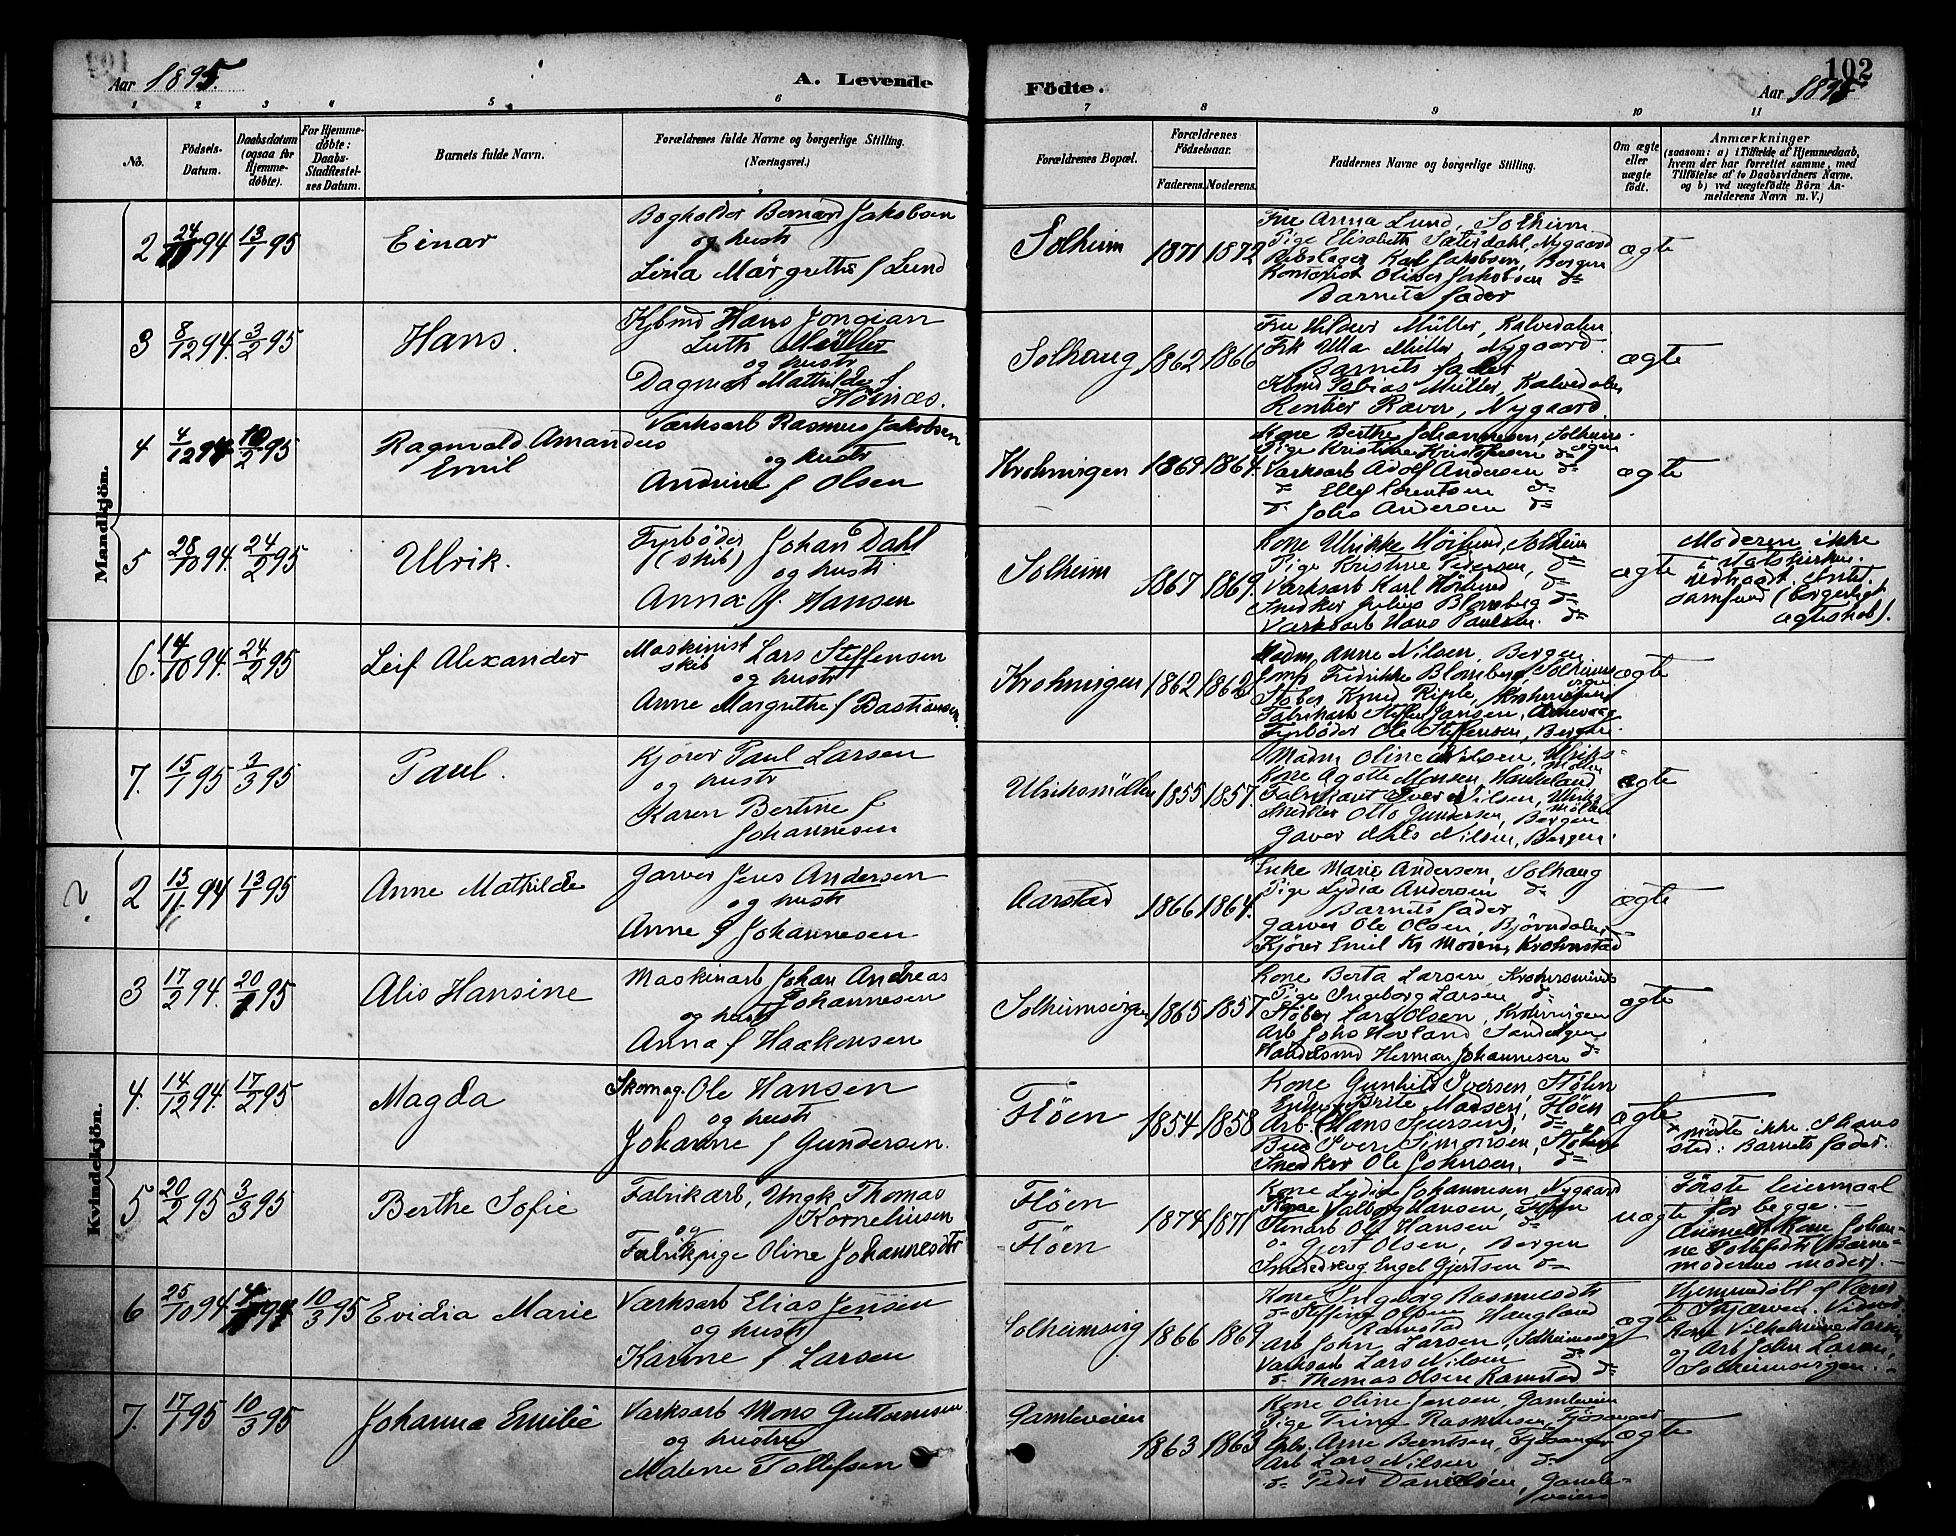 101
102
Aar 1895.
A. Levende
Födte.
Aar 1895
1 2 3 4 5 6 7 8 9 10 11
No.
Födsels-Datum.
Daabsdatum (ogsaa for Hjemme-døbte).
For Hjemme-døbte: Daabs-Stadfæstel-ses Datum.
Barnets fulde Navn.
Forældrenes fulde Navne og borgerlige Stilling. (Næringsvei.)
Forældrenes Bopæl.
Forældrenes Födselsaar.
Faderens. Moderens.
Faddernes Navne og borgerlige Stilling.
Om ægte eller uægte födt.
Anmærkninger
(saasom: a) i Tilfælde af Hjemmedaab, hvem der har forrettet samme, med Tilföielse af to Daabsvidners Navne. og b) ved uægtefödte Börn An-melderens Navn m.V.)
Mandkjön.
2 24/11 94 13/1 95
Einar
Bogholder Bernard Jakobsen
og hustr
Lina Margrethe f Lund
Solheim
1871 1872
Fru Anna Lund, Solheim
Pige Elisabeth Sæterdahl, Nygaard
Rebslager Karl Jakobsen, Bergen
Kontorist Oliver Jakobsen do
Barnets fader
ægte
3 8/12 94. 3/2 95
Hans.
Kjbmd Hans Jongian
Luth Müller
og hustr
Dagmar Mathilde f.
Hornæs.
Solhaug
1862 1866
Fru Hildur Müller, Kalvedalen.
Frk Ulla Müller Nygaard.
Barnets fader
Kbmd Tobias Müller, Kalvedalen
Rentier Raver, Nygaard.
ægte
4 4/12 94 10/2 95
Ragnvald Amandus
Emil
Værksarb Rasmus Jakobsen
og hustr
Andrine f Olsen
Krohnvigen
1869 1864.
Kone Berthe Johannesen, Solheims-
vigen
Pige Kristine Kristofersen do
Værksarb Adolf Andersen do
do Ellef Lorentsen do
do Johs Andersen do
ægte
5 28/10 94. 24/2 95
Ulrik.
Fyrbøder Johan Dahl
(skib)
og hustr.
Anna f. Hansen
Solheim
1867 1869.
Kone Ulrikke Höilund, Solheim
Pige Kristine Pedersen, do
Værksarb Karl Höilund do
Snedker Julius Blomberg do
Værksarb Hans Paulsen. do
ægte
Moderen ikke
i Statskirken.
samfund (borgerligt
ægteskab).
6. 14/10 94. 24/2 95
Leif Alexander
Maskinist Lars Steffensen
skib
og hustr
Anne Margrethe f Bastiansen.
Krohnvigen
1862 1862
Madm Anne Nilsen, Bergen
Jomf Fredrikke Blomberg, Solheims
vigen
Støber Knud Riple, Krohnvigen
Fabrikarb Steffen Jansen, Arnevaag
Fyrbøder Ole Steffensen, Bergen.
ægte
7. 15/1 95 3/3 95
Paul.
Kjører Paul Larsen
og hustr
Karen Bertine f
Johannesen
Ulriksmöllen
1855 1857.
Madm Oline Nilsen, Ulriks-
möllen
Kone Agotte Monsen, Haukeland
Fabrikant Iver Nilsen, Ulriks
möllen
Snedker Otto Gundersen, Bergen
Garver Nils Nilsen, Bergen.
ægte
Kvindekjön.
?.
2 15/11 94 13/1 95
Anne Mathilde
Garver Jens Andersen
og hustr
Anne f Johannesen
Aarstad
1866 1864.
Enke Marie Andersen, Solhaug
Pige Lydia Andersen do
Barnets fader
Garver Ole Olsen, Björndalen
Kjører Emil Kr Monsen, Krohnstad
ægte
3 17/2 94. 20/1 95
Alis Hansine
Maskinarb Johan Andreas
Johannesen
og hustr
Anna f Haakonsen
Solheimsvigen
1865 1857
Kone Berta Larsen, Krohnsminde
Pige Ingeborg Larsen do
Støber Lars Olsen, Krohnvigen
Arb Johs Hovland Sandvigen
Handelsmd Herman Johannesen do
ægte
4. 14/12 94. 17/2 95
Magda
Skomag. Ole Hansen
og hustr
Johanne f Gundersen.
Flöen
1854 1858
Kone Gunhild Iversen, Flöen
Enke Brite Madsen, Flöen
Arb. (Hans Iversen) do
Simonsen, Flöen
Snedker Ole Johnsen, do
ægte
mödte ikke. I hans
sted: Barnets fader.
5 20/2 95 3/3 95
Berthe Sofie
Fabrikarb, Ungk Thomas
Korneliusen
og
Fabrikpige Oline Johannesdtr
Flöen
Flöen
1874 1871
Kone Lydia Johannesen Nygaard
Kone Valborg Hansen, Flöen
Stenarb Olf Hansen do
do Gjert Olsen, Bergen
Smededreng Engel Gjertsen do
uægte
Første leiermaal
for begge.
Anmeldt Kone Johan-
ne Tollefsdtr (Barne-
moderens moder).
6 25/10 94. 10/3 95
Evidia Marie
Værksarb Elias Jensen
og hustr
Karine f Larsen
Solheimsvig
1866 1869
Kone Ingeborg Rasmusdtr
do Steffine Olsen Haugland
Ramstad
Arb John Larsen, Solheimsvig
Værksarb Lars Nilsen do
do Thomas Olsen Ramstad do
ægte
Hjemmedöbt af
Kone Vilhelmine Larsen
og Arb John Larsen,
Solheimsvigen.
7. 17/1 95 10/3 95
Johanna Emilie
Værksarb Mons Guttormsen
og hustru
Malene Tollefsen
Gamleveien
1863 1863
Kone Oline Jensen, Gamleveien
Pige Trine Rasmusen, Fjösanger
Arne Berntsen, Fjösanger
Arb Lars Nilsen do
do Peder Danielsen, Gamle-
veien
ægte